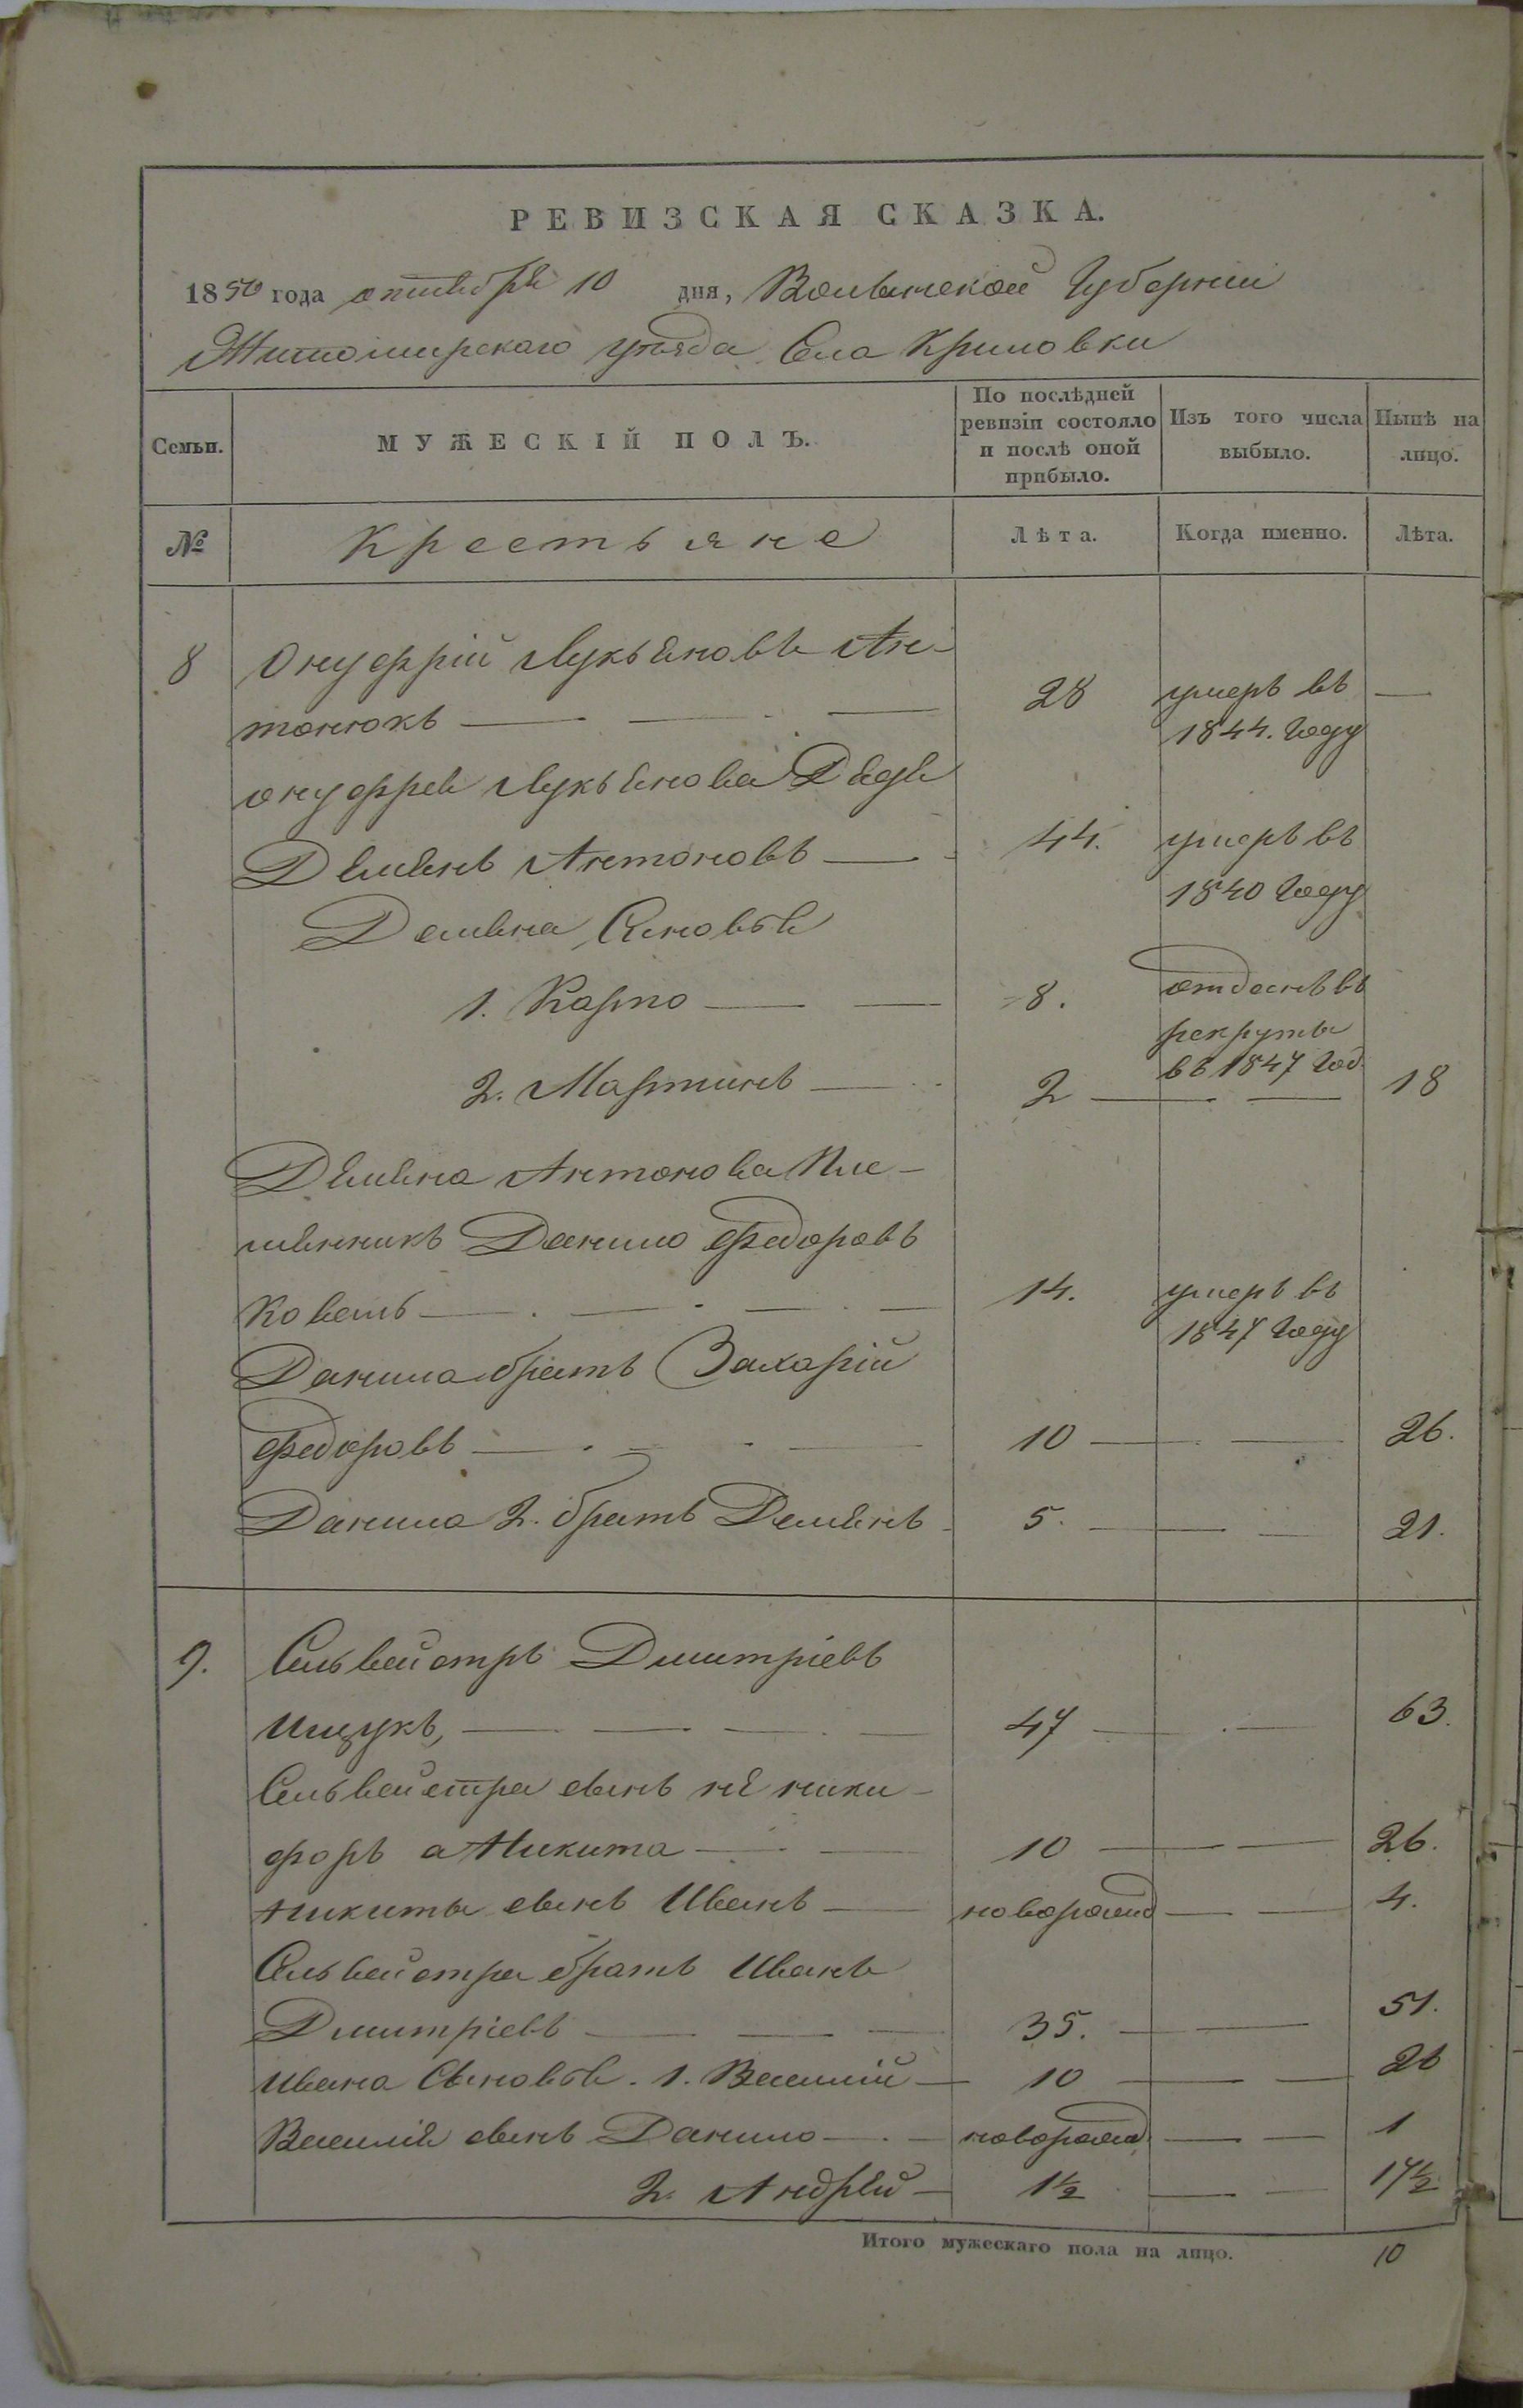 РЕВИЗСКАЯ СКАЗКА.
1850 года октебря 10 дня, Волынской Губерніи
Житомирскаго уѣзда Села Криловки
Семьи.
МУЖЕСКІЙ ПОЛЪ.
По послѣдней ревизіи состояло и послѣ оной прибыло.
Изъ того числа выбыло.
Нынѣ на лицо.
№
Крестьяне
Лѣта.
Когда именно.
Лѣта.
8 Онуфрій Лукьяновъ Ан-
тонюкъ — 28 умеръ въ 1844. Году —
онуфрея Лукьянова Дядя
Демянъ Антоновъ — 44. умеръ въ 1840 Году
Демяна Сыновья
1. Карпо — 8. отданъ въ рекруты въ 1847 Год.
2. Мартинъ — 2 — 18
Демяна Антонова Пле-
мянникъ Данило Федоровъ
Коваль — 14. умеръ въ 1847 Году
Данила братъ Захарій
Федоровъ — 10 — 26.
Данила 2. братъ Демянъ 5. — 21.
9. Сильвестръ Дмитріевъ
Ищукъ, — 47 — 63.
Сильвестра сынъ не ники-
форъ а Никита — 10 — 26.
Никиты сынъ Иванъ — новорожд — 4.
Сильвестра братъ Иванъ
Дмитріевъ — 35. — 51.
Ивана Сыновья. 1. Василій — 10 — 26
Василія сынъ Данило — новорожд. — 1
2. Андрей — 1½ — 17½
Итого мужескаго пола на лицо. 10